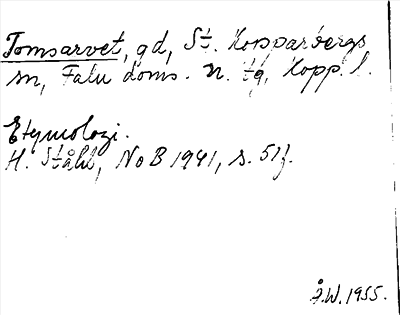 Tomsarvet, gd, St. Kopparbergs
sn, Falu doms. n. tg, Kopp. l.
Etymologi.
H. Ståhl, NoB 1941, s. 51f.
Å.W. 1955.